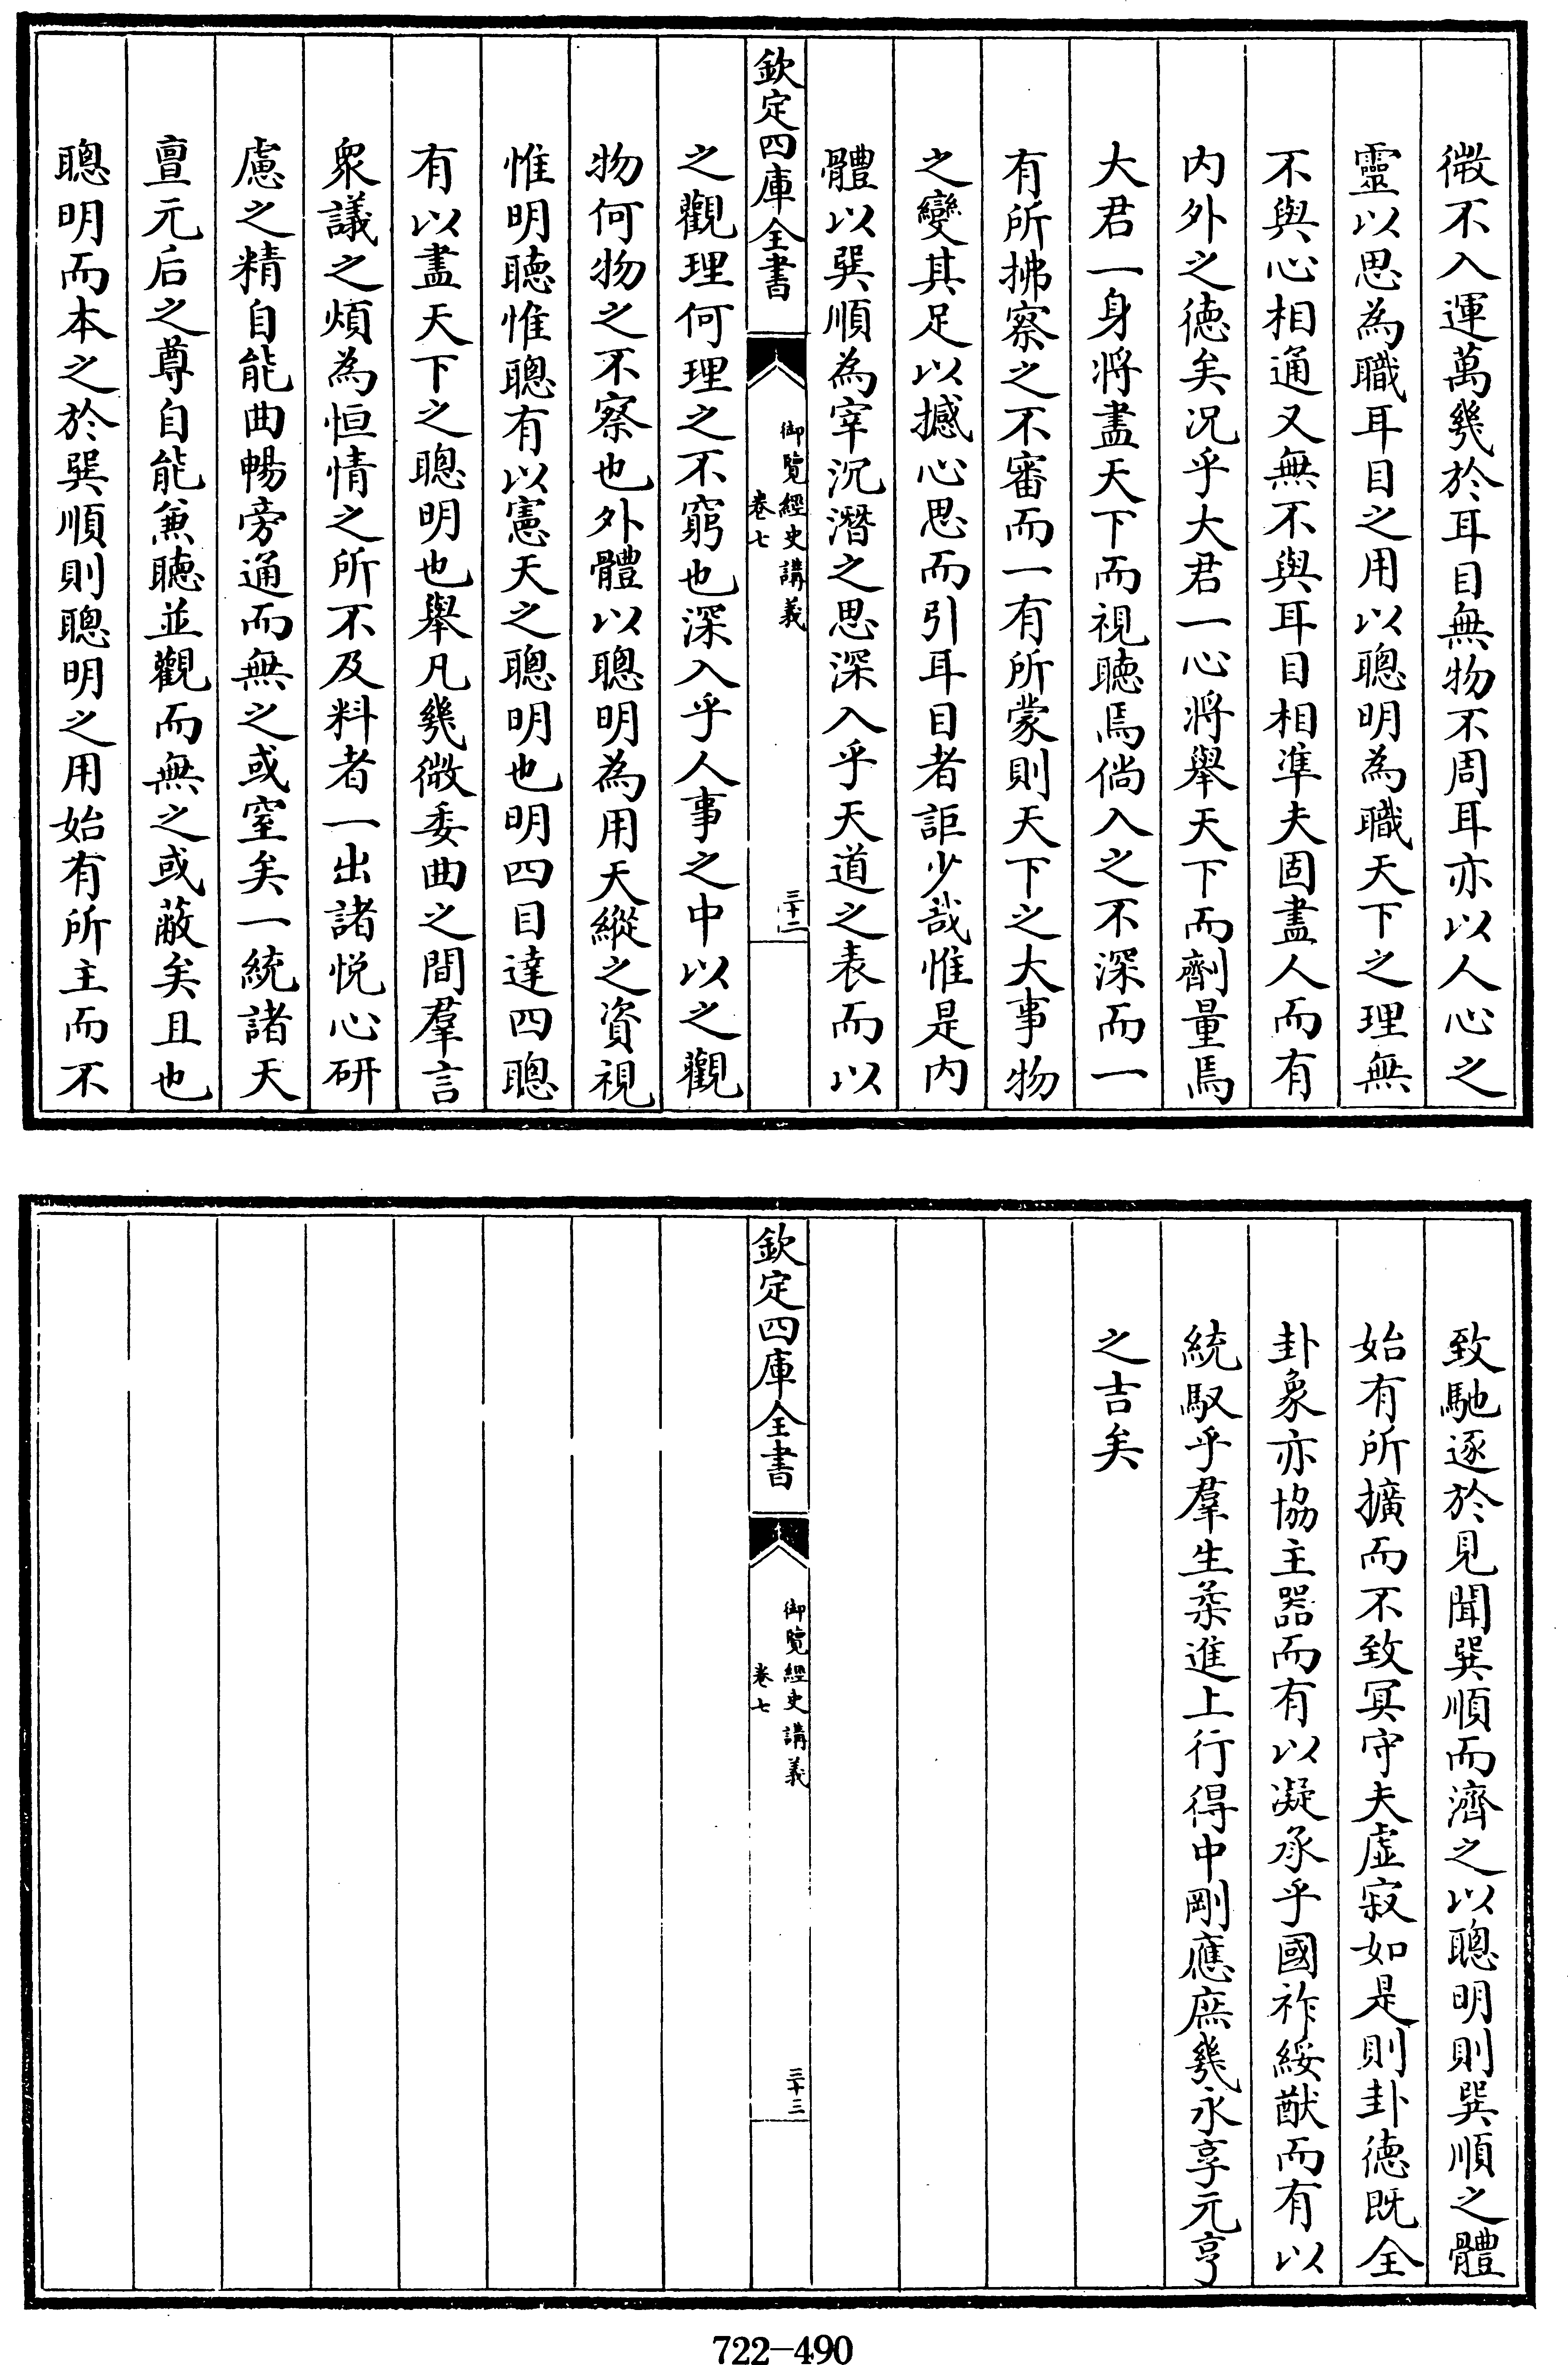 微不入運萬幾於耳目無物不周耳亦以人心之
靈以思為職耳目之用以聰明為職天下之理無
不與心相通又無不與耳目相準夫固盡人而有
内外之徳矣况乎大君一心將舉天下而劑量焉
大君一身將盡天下而視聴焉倘入之不深而一
有所拂察之不審而一有所蒙則天下之大事物
之變其足以撼心思而引耳目者詎少哉惟是内
體以巽順為宰沉潛之思深入乎天道之表而以
欽定四庫全書
御覽經史講義
卷七
三十二
之觀理何理之不窮也深入乎人事之中以之觀
物何物之不察也外體以聰明為用天縱之資視
惟明聴惟聰有以憲天之聰明也明四目達四聰
有以盡天下之聰明也舉凡幾微委曲之間羣言
衆議之煩為恒情之所不及料者一出諸悅心研
慮之精自能曲暢旁通而無之或窒矣一統諸天
亶元后之尊自能兼聴並觀而無之或蔽矣且也
聰明而本之於巽順則聰明之用始有所主而不
致馳逐於見聞巽順而濟之以聰明則巽順之體
始有所擴而不致冥守夫虚寂如是則卦徳既全
卦象亦協主器而有以凝承乎國祚綏猷而有以
統馭乎羣生柔進上行得中剛應庶幾永享元亨
之吉矣
欽定四庫全書
御覽經史講義
卷七
三十三
722-490